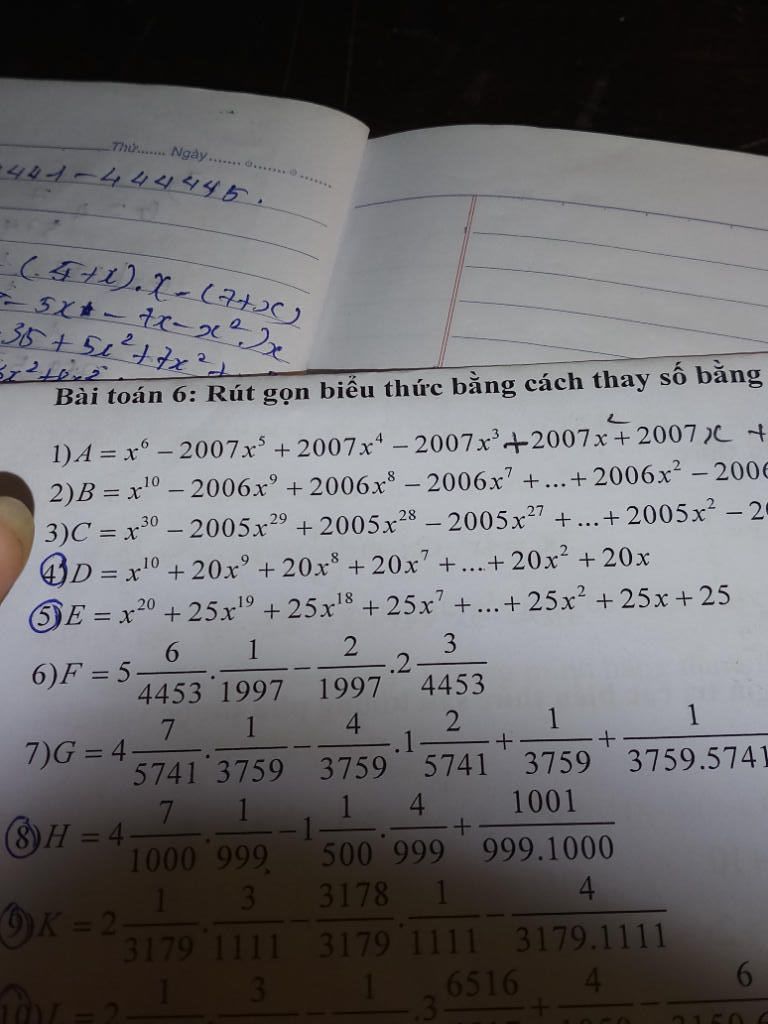 Thứ....... Ngày....... o....... o.......
441 - 444445.
(5+x).x - (7+x)
- 5x - 7x - x².)x
35 + 5x² + 7x² +
Bài toán 6: Rút gọn biểu thức bằng cách thay số bằng
1)A = x⁶ − 2007x⁵ + 2007x⁴ − 2007x³ + 2007x² + 2007x +
2)B = x¹⁰ − 2006x⁹ + 2006x⁸ − 2006x⁷ + ... + 2006x² − 2006
3)C = x³⁰ − 2005x²⁹ + 2005x²⁸ − 2005x²⁷ + ... + 2005x² −
4)D = x¹⁰ + 20x⁹ + 20x⁸ + 20x⁷ + ... + 20x² + 20x
5)E = x²⁰ + 25x¹⁹ + 25x¹⁸ + 25x⁷ + ... + 25x² + 25x + 25
6)F = 5 6/4453 . 1/1997 − 2/1997 . 2 3/4453
7)G = 4 7/5741 . 1/3759 − 4/3759 . 1 2/5741 + 1/3759 + 1/3759.5741
8)H = 4 7/1000 . 1/999 − 1 1/500 . 4/999 + 1001/999.1000
9)K = 2 1/3179 . 3/1111 − 3178/3179 . 1/1111 − 4/3179.1111
10)L = 2 1 . 3 − 1 . 3 6516 + 4 − 6